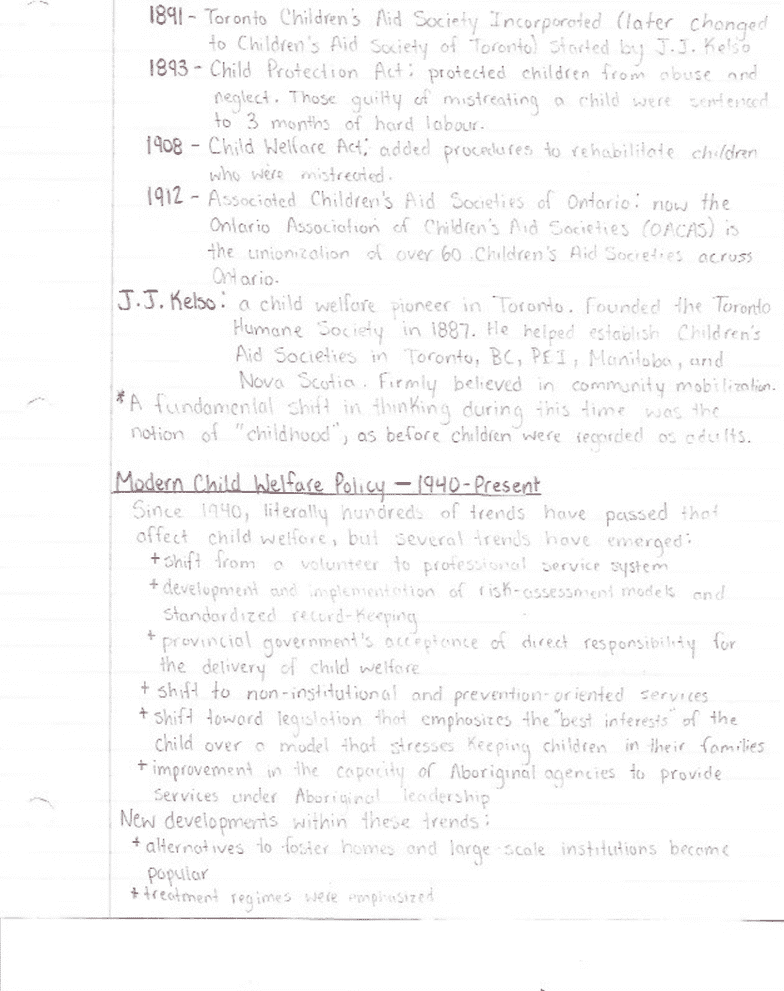 1891 - Toronto Children's Aid Society Incorporated (later changed
to Children's Aid Society of Toronto) started by J.J. Kelso
1893 - Child Protection Act: protected children from abuse and
neglect. Those guilty of mistreating a child were sentenced
to 3 months of hard labour.
1908 - Child Welfare Act: added procedures to rehabilitate children
who were mistreated.
1912 - Associated Children's Aid Societies of Ontario: now the
Ontario Association of Children's Aid Societies (OACAS) is
the unionization of over 60 Children's Aid Societies across
Ontario.
J.J. Kelso: a child welfare pioneer in Toronto. Founded the Toronto
Humane Society in 1887. He helped establish Children's
Aid Societies in Toronto, BC, PEI, Manitoba, and
Nova Scotia. Firmly believed in community mobilization.
*A fundamental shift in thinking during this time was the
notion of "childhood", as before children were regarded as adults.
Modern Child Welfare Policy - 1940-Present
Since 1940, literally hundreds of trends have passed that
affect child welfare, but several trends have emerged:
+ shift from a volunteer to professional service system
+ development and implementation of risk-assessment models and
standardized record-keeping
+ provincial government's acceptance of direct responsibility for
the delivery of child welfare
+ shift to non-institutional and prevention-oriented services
+ shift toward legislation that emphasizes the "best interests" of the
child over a model that stresses keeping children in their families
+ improvement in the capacity of Aboriginal agencies to provide
services under Aboriginal leadership
New developments within these trends:
+ alternatives to foster homes and large scale institutions become
popular
+ treatment regimes were emphasized